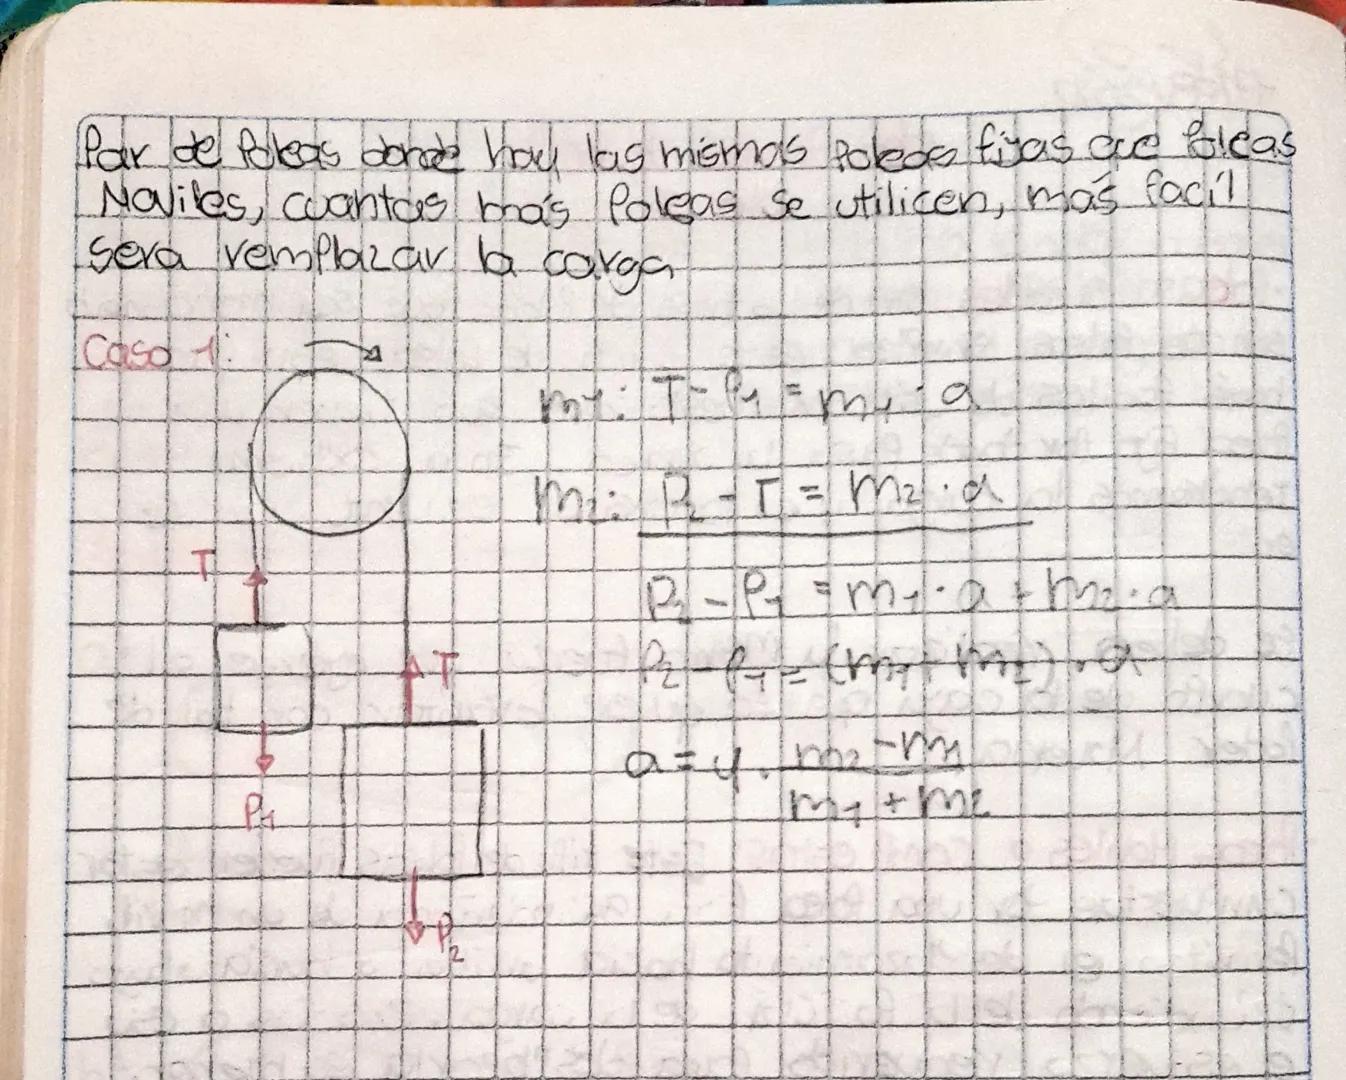 Par de Poleas donde hay las mismas Poleas fijas que Poleas
Moviles, cuantas más Poleas se utilicen, más facil
sera remplazar la carga
Caso 1:
m1: T - P1 = m1 · a
m2: P2 - T = m2 · a
P2 - P1 = m1 · a + m2 · a
T
T
P2 - P1 = (m1 + m2) · a
a = g · m2 - m1
m1 + m2
P1
P2